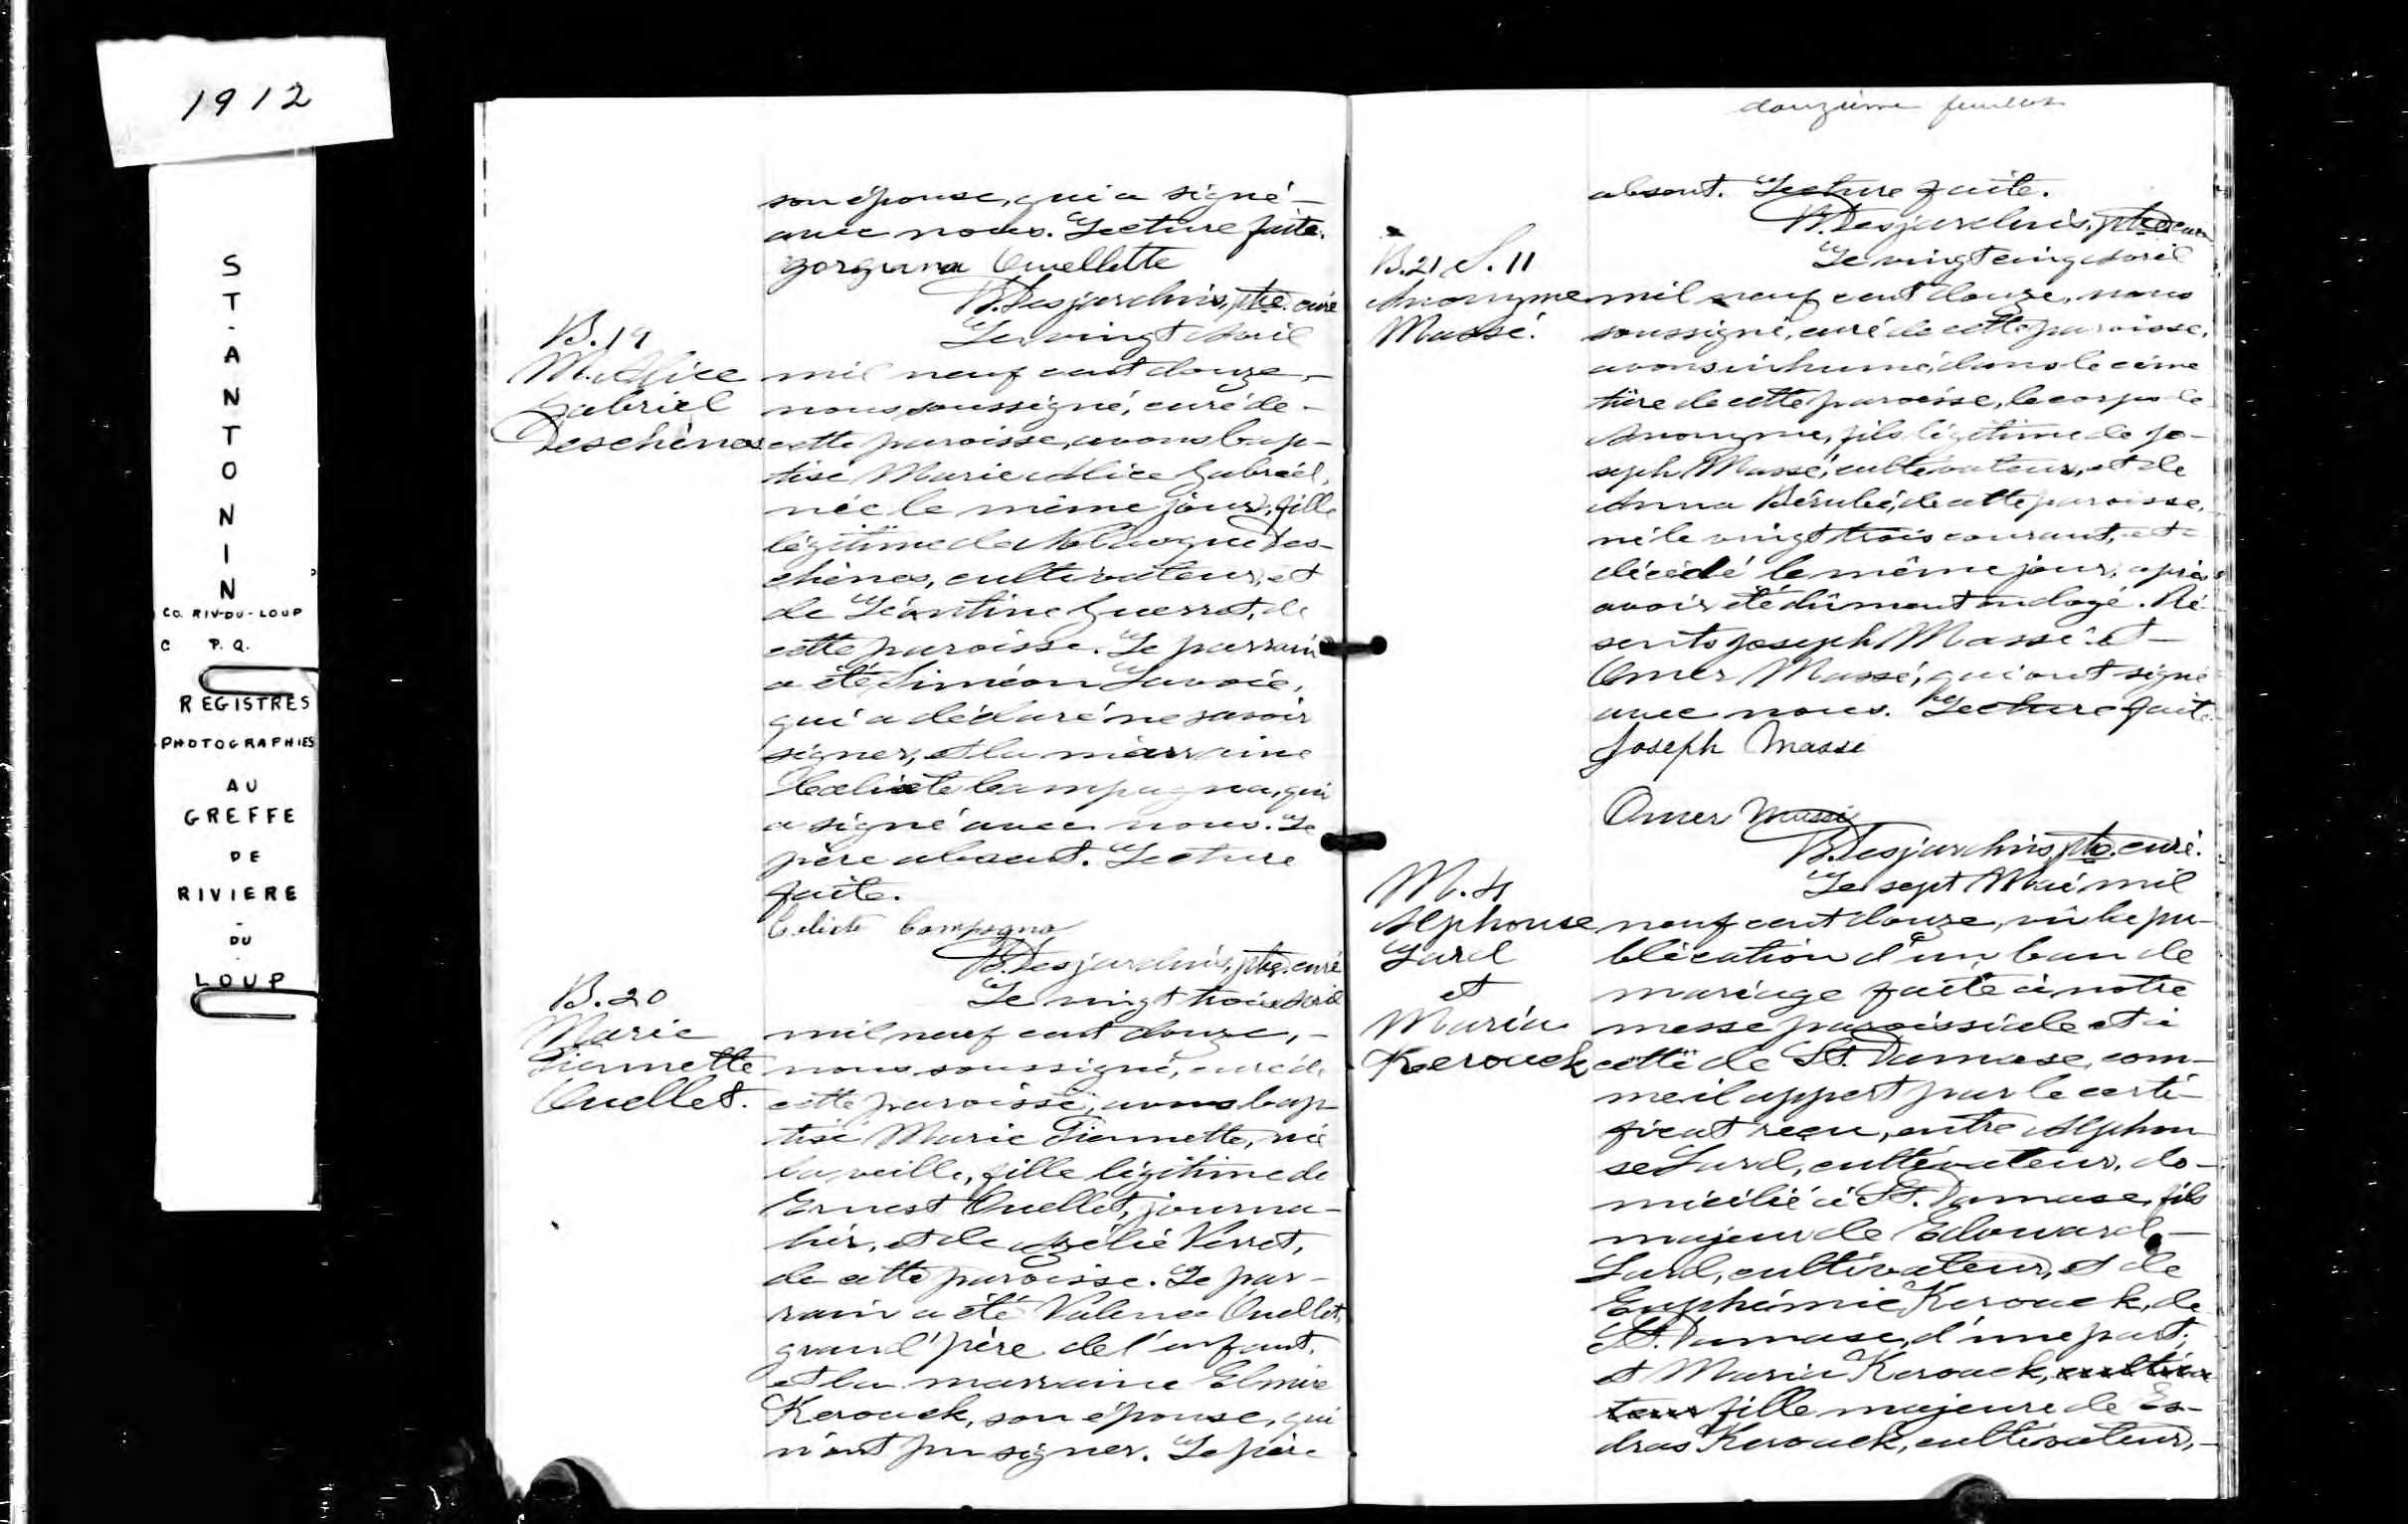 1912
ST-ANTONIN
CO. RIV-DU-LOUP
P. Q.
REGISTRES
PHOTOGRAPHIES
AU
GREFFE
DE
RIVIERE
-
DU
LOUP
son épouse, qui a signé
avec nous. Lecture faite.
Ouellette
B. Desjardins, ptre. curé
B. 19
M. Alice
Gabriel
Deschènes
Le vingt Avril
mil neuf cent douze,
nous soussigné, curé de
cette paroisse, avons bap-
tisé Marie Alice Gabriel,
née le même jour, fille
légitime de Des-
chènes, cultivateur, et
de Léontine Guerret, de
cette paroisse. Le parrain
a été Siméon Lavoie,
qui a déclaré ne savoir
signer, et la marraine
Campagna, qui
a signé avec nous. Le
père absent. Lecture
faite.
Campagna
B. Desjardins, ptre. curé
B. 20
Marie
Ouellet.
Le vingt trois Avril
mil neuf cent douze,
nous soussigné, curé de
cette paroisse, avons bap-
tisé Marie née
la veille, fille légitime de
Ernest Ouellet, journa-
lier, et de Verret,
de cette paroisse. Le par-
rain a été Ouellet,
grand'père de l'enfant,
et la marraine Elmire
Kerouck, son épouse, qui
n'ont pu signer. Le père
douzième feuillet
absent. Lecture faite.
B. Desjardins, ptre curé
B. 21 S. 11
Anonyme
Massé.
Le vingt cinq Avril
mil neuf cent douze, nous
soussigné, curé de cette paroisse,
avons inhumé, dans le cime
tière de cette paroisse, le corps de
Anonyme, fils légitime de Jo-
seph Massé, cultivateur, et de
Anna Bérubé, de cette paroisse,
né le vingt trois courant, et
décédé le même jour, après
avoir été dûment ondoyé. Pré-
sents Joseph Massé et
Omer Massé, qui ont signé
avec nous. Lecture faite.
Joseph Masse
Omer Massé
B. Desjardins, ptre. curé.
M. 4
Alphonse
Lard
et
Maria
Kerouck
Le sept Mai mil
neuf cent douze, vû la pu-
blication d'un ban de
mariage faite à notre
messe paroissiale et à
celle de St. Damase, com-
me il appert par le certi-
ficat reçu, entre Alphon
se Lard, cultivateur, do-
micilié à St. Damase, fils
majeur de Edouard
Lard, cultivateur, et de
Euphémie Kerouck, de
St. Damase, d'une part;
et Maria Kerouck, cultiva
teur fille majeure de Es-
dras Kerouck, cultivateur,